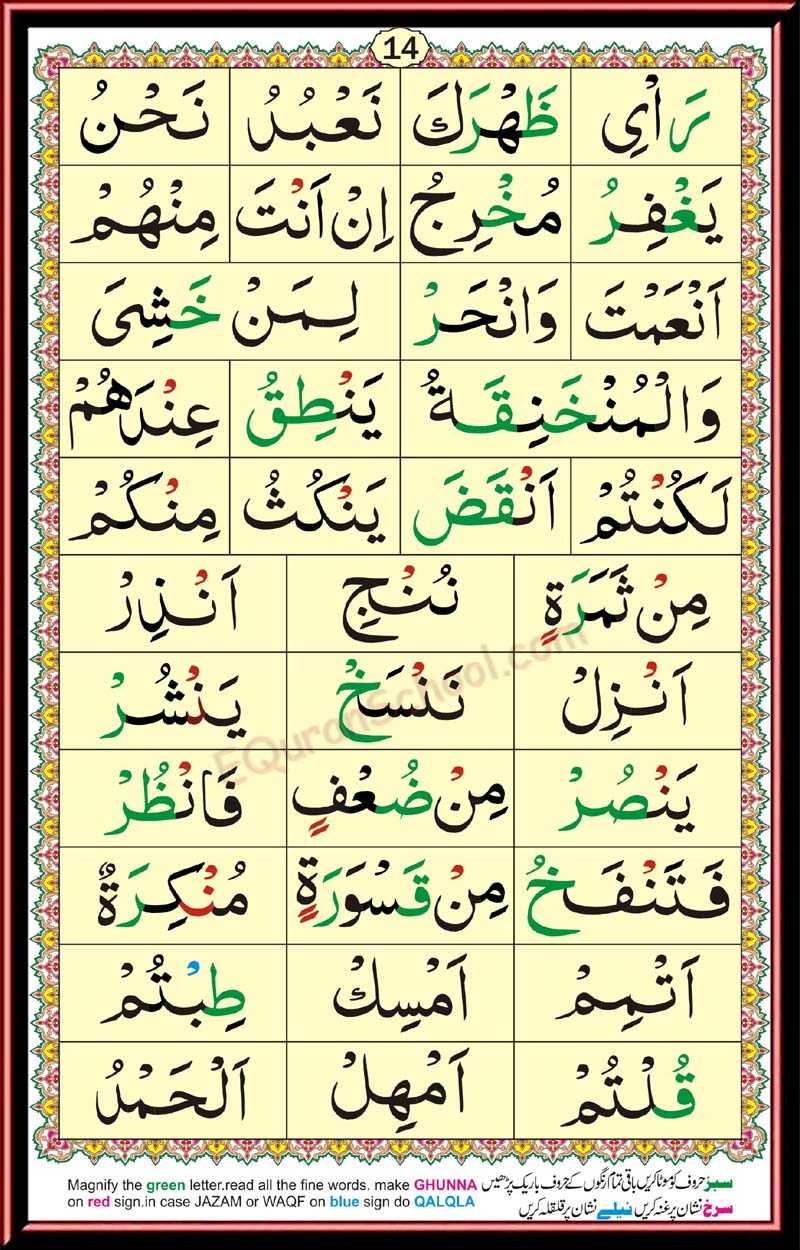 14
رَاْیِ ظَهْرَكَ نَعْبُدُ نَحْنُ
یَغْفِرُ مُخْرِجُ اِنْ اَنْتَ مِنْهُمْ
اَنْعَمْتَ وَانْحَرْ لِمَنْ خَشِیَ
وَالْمُنْخَنِقَةُ یَنْطِقُ عِنْدَهُمْ
لَكُنْتُمْ اَنْقَضَ یَنْكُثُ مِنْكُمْ
مِنْ ثَمَرَةٍ نُنْجِ اَنْذِرْ
اَنْزِلْ نَنْسَخْ یَنْشُرْ
یَنْصُرْ مِنْ ضُعْفٍ فَانْظُرْ
فَتَنْفَخُ مِنْ قَسْوَرَةٍ مُنْكِرَةٌ
اَتْمِمْ اَمْسِكْ طِبْتُمْ
قُلْتُمْ اَمْهِلْ اَلْحَمْدُ
EQuranSchool.com
Magnify the green letter.read all the fine words. make GHUNNA
on red sign.in case JAZAM or WAQF on blue sign do QALQLA
سبز حروف کو موٹا کریں باقی تمام رنگوں کے حروف باریک پڑھیں
سرخ نشان پر غنہ کریں نیلے نشان پر قلقلہ کریں